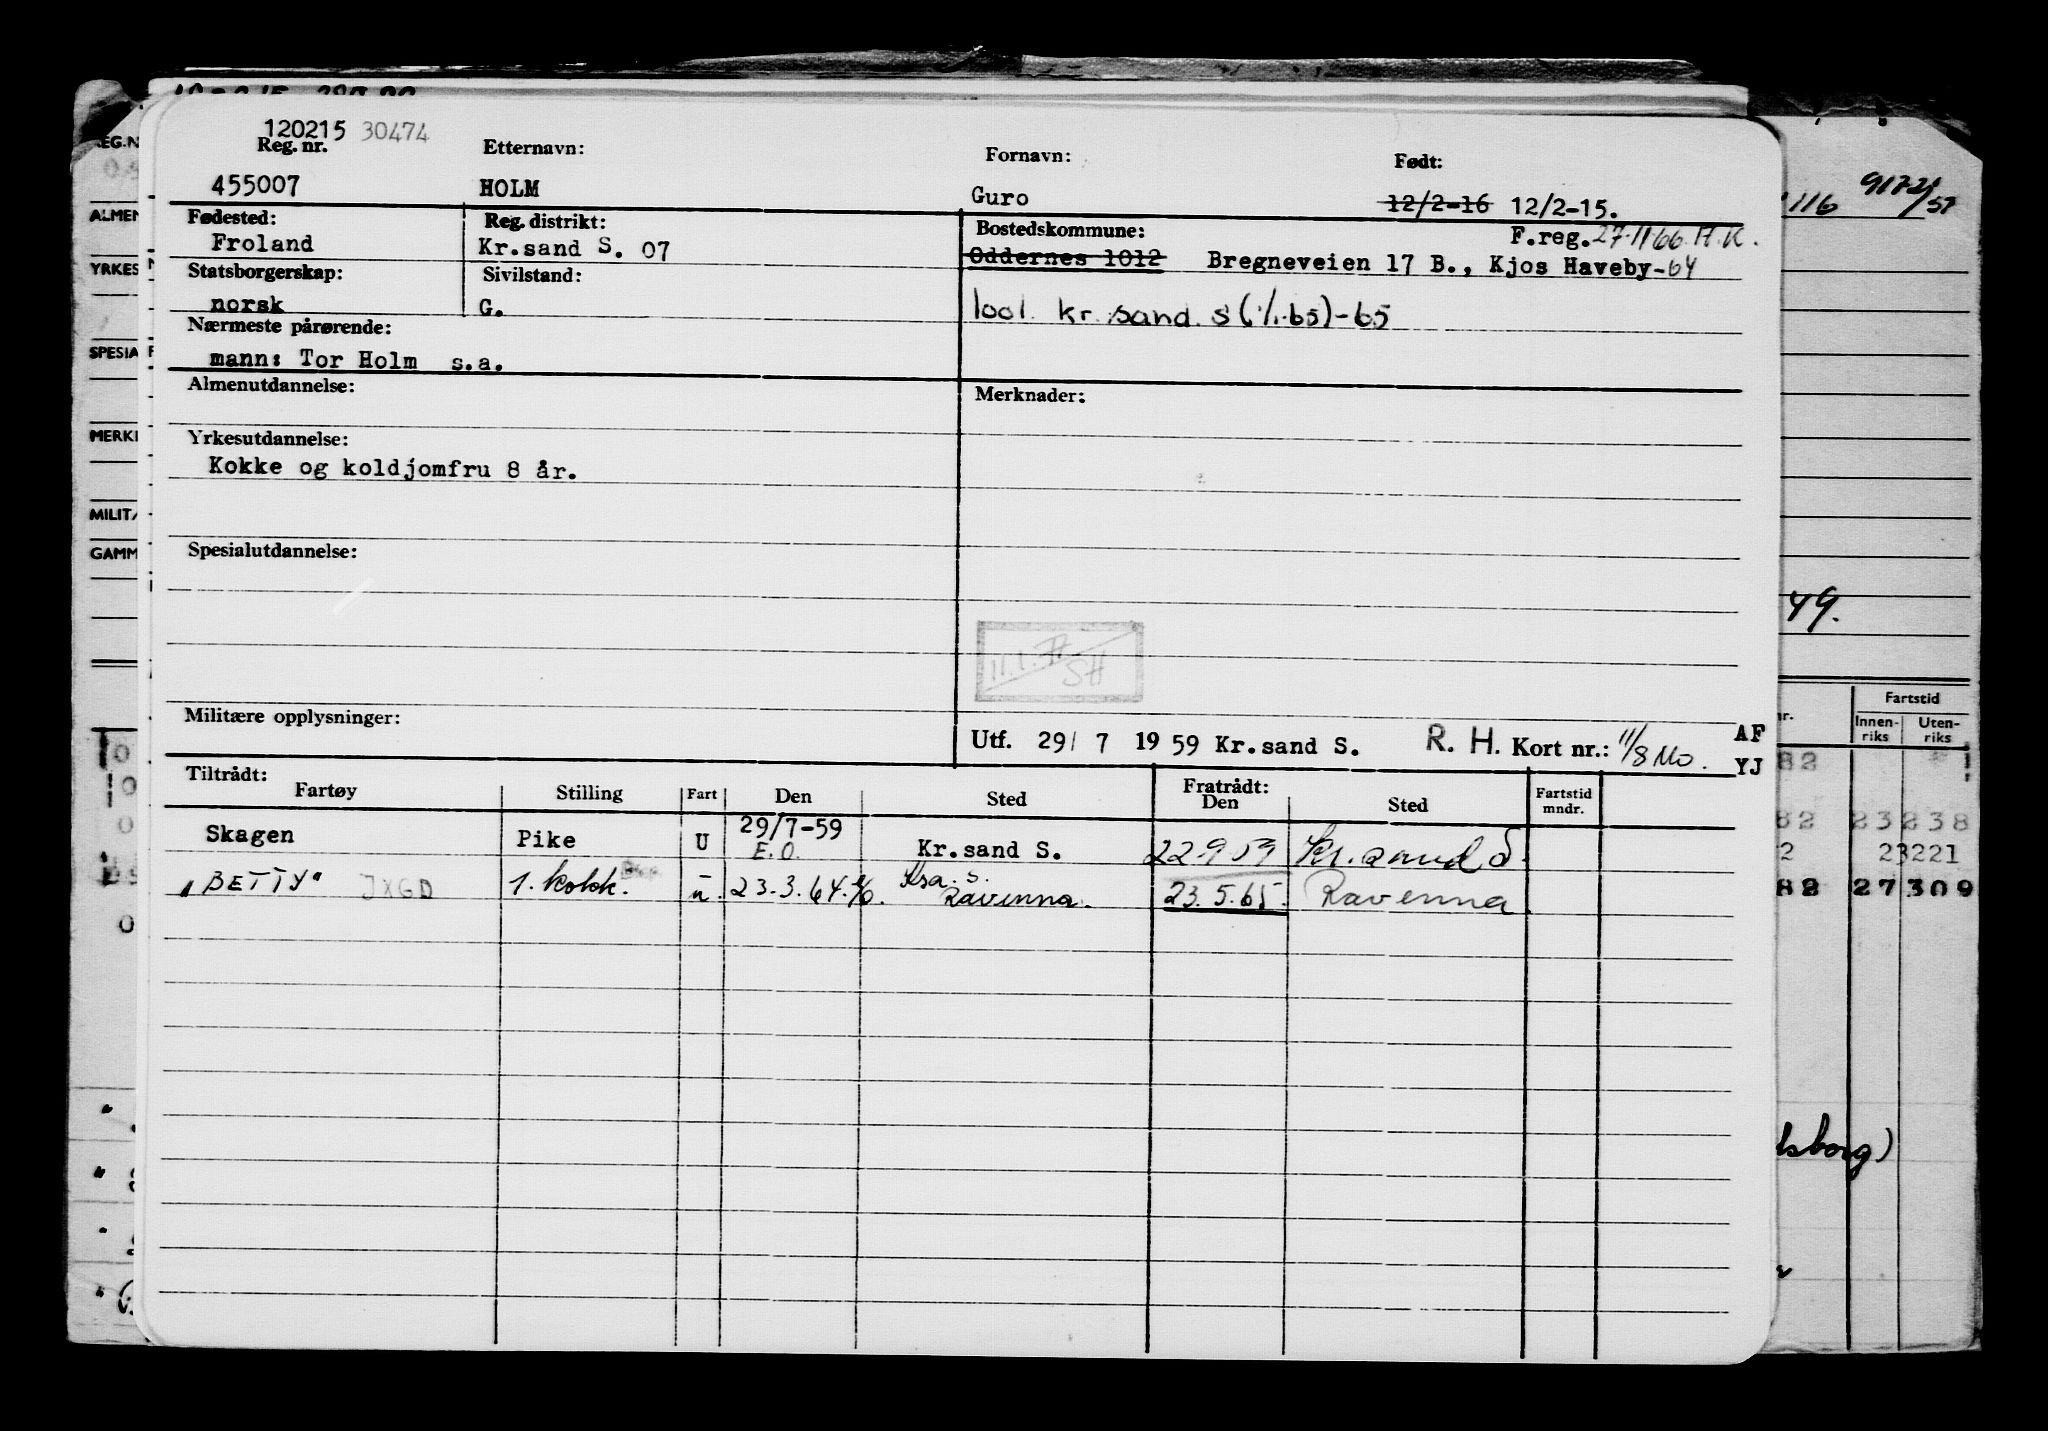 120215 30474
Reg. nr. Etternavn: Fornavn: Født:
455007 HOLM Guro 12/2-16 12/2-15.
Fødested: Reg. distrikt: Bostedskommune: F.reg. 27.11.66. H.K.
Froland Kr.sand S. 07 Oddernes 1012 Bregneveien 17 B., Kjos Haveby-64
Statsborgerskap: Sivilstand:
norsk G. 1001. kr.sand. S (1/1.65)-65
Nærmeste pårørende:
mann: Tor Holm s.a.
Almenutdannelse: Merknader:
Yrkesutdannelse:
Kokke og koldjomfru 8 år.
Spesialutdannelse:
SH
Militære opplysninger:
Utf. 29/ 7 1959 Kr.sand S. R. H. Kort nr.: 11/8 Mo. AF
YJ
Tiltrådt: Fratrådt:
Fartøy Stilling Fart Den Sted Den Sted Fartstid mndr.
Skagen Pike U 29/7-59 Kr.sand S. 22.9.59 Kr.sand S.
E.O.
"BETTY" JXGD 1. kokk. u. 23.3.64. Ksa. S. Ravenna. 23.5.65. Ravenna
REG.N
ALMEN
YRKES
SPESIA
MERKI
MILIT
GAMM
116 9172/57
49.
nr. Fartstid
Innen-riks Uten-riks
82
82 23238
2 23221
82 27309
dsborg)